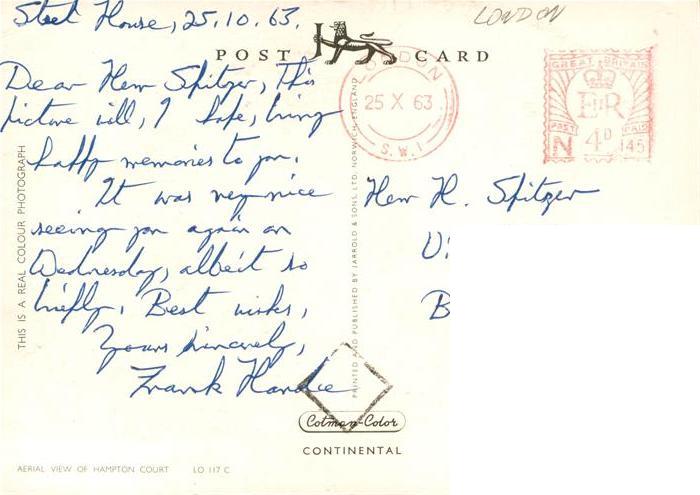 Steet House, 25.10.63.
LONDON
POST CARD
Dear Herr Spitzer, This
picture will, I hope, bring
happy memories to you.
It was very nice
seeing you again on
Wednesday, albeit so
briefly. Best wishes,
Yours sincerely,
Frank Hardie
THIS IS A REAL COLOUR PHOTOGRAPH
PRINTED AND PUBLISHED BY JARROLD & SONS, LTD. NORWICH, ENGLAND
LONDON
25 X 63
S.W.1
GREAT BRITAIN
E II R
POST PAID
4D
N 145
Herr H. Spitzer
B
Cotman-Color
CONTINENTAL
AERIAL VIEW OF HAMPTON COURT LO 117 C